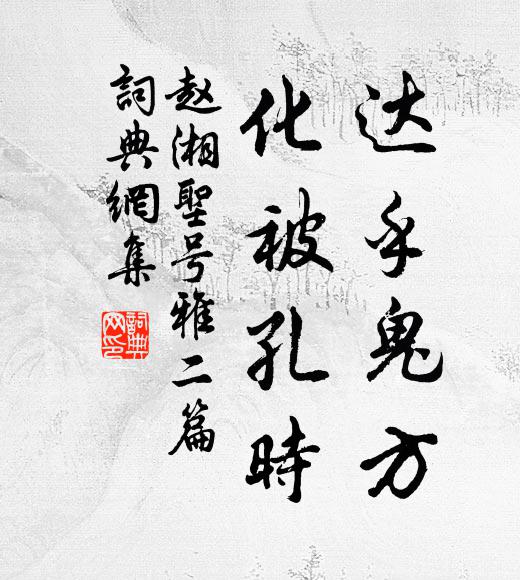 达乎鬼方
化被孔時
赵湘聖号雅二篇
詞典網集
詞典网印